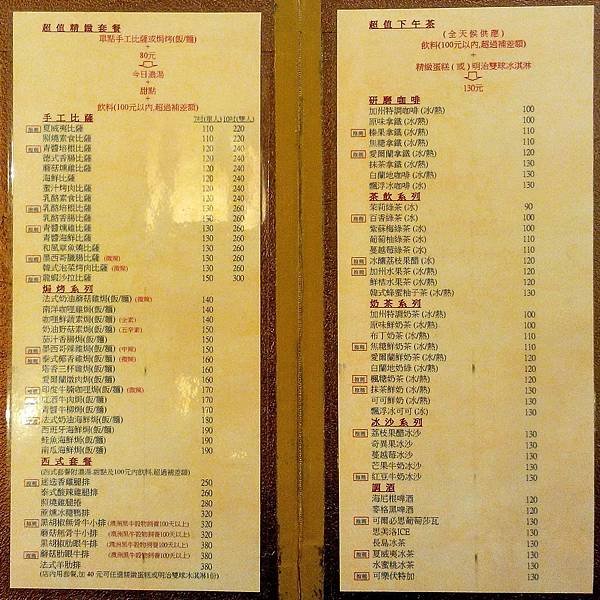 超值精緻套餐
單點手工比薩或焗烤(飯/麵)
+
80元
今日濃湯
+
甜點
+
飲料(100元以內,超過補差額)
手工比薩 7吋(單人) 10吋(雙人)
推薦 夏威夷比薩 110 220
照燒素食比薩 110 220
推薦 青醬培根比薩 120 240
德式香腸比薩 120 240
蘑菇燻雞比薩 120 240
海鮮比薩 120 240
蜜汁烤肉比薩 120 240
乳酪素食比薩 120 240
推薦 乳酪培根比薩 130 260
乳酪香腸比薩 130 260
推薦 青醬燻雞比薩 130 260
青醬海鮮比薩 130 260
和風章魚燒比薩 130 260
推薦 墨西哥臘腸比薩 (微辣) 130 260
韓式泡菜烤肉比薩 (微辣) 130 260
推薦 龍蝦沙拉比薩 150 300
焗烤系列
法式奶油蘑菇雞焗(飯/麵) (微辣) 140
南洋咖哩雞焗(飯/麵) 140
咖哩鮮蔬素焗(飯/麵) (全素) 140
奶油野菇素焗(飯/麵) (五辛素) 150
茄汁香腸焗(飯/麵) 150
推薦 墨西哥辣雞焗(飯/麵) (中辣) 150
推薦 泰式椰香雞焗(飯/麵) (微辣) 160
塔香三杯雞焗(飯/麵) 160
愛爾蘭燉肉焗(飯/麵) 160
推薦 印度牛腩咖哩焗(飯/麵) (微辣) 170
推薦 紅酒牛肉焗(飯/麵) 160
青醬牛柳焗(飯/麵) 170
推薦 法式奶油海鮮焗(飯/麵) 180
西班牙海鮮焗(飯/麵) 190
鮭魚海鮮焗(飯/麵) 190
南瓜海鮮焗(飯/麵) 190
西式套餐
(西式套餐附濃湯.甜點及100元內飲料,超過補差額)
推薦 迷迭香雞腿排 250
泰式酸辣雞腿排 260
照燒雞腿捲 280
蔗燻冰糖鴨排 320
推薦 黑胡椒無骨牛小排 (澳洲黑牛穀物飼養100天以上) 320
蘑菇無骨牛小排 (澳洲黑牛穀物飼養100天以上) 320
黑胡椒肋眼牛排 (澳洲黑牛穀物飼養100天以上) 380
推薦 蘑菇肋眼牛排 (澳洲黑牛穀物飼養100天以上) 380
法式羊肋排 380
(店內用套餐,加 40 元可任選精緻蛋糕或明治雙球冰淇淋1份)
超值下午茶
(全天候供應)
飲料(100元以內,超過補差額)
+
精緻蛋糕 ( 或 ) 明治雙球冰淇淋
130元
研磨咖啡
加州特調咖啡 (冰/熱) 100
原味拿鐵 (冰/熱) 100
推薦 榛果拿鐵 (冰/熱) 110
焦糖拿鐵 (冰/熱) 110
推薦 愛爾蘭拿鐵 (冰/熱) 120
抹茶拿鐵 (冰/熱) 130
白蘭地咖啡 (冰/熱) 130
飄浮冰咖啡 (冰) 130
茶飲系列
茉莉綠茶 (冰) 90
推薦 百香綠茶 (冰) 100
紫蘇梅綠茶 (冰) 110
葡萄柚綠茶 (冰) 110
蔓越莓綠茶 (冰) 110
推薦 冰釀荔枝果醋 (冰) 120
推薦 加州水果茶 (冰/熱) 120
鮮桔水果茶 (冰/熱) 120
韓式蜂蜜柚子茶 (冰/熱) 130
奶茶系列
加州特調奶茶 (冰/熱) 100
原味鮮奶茶 (冰/熱) 100
布丁奶茶 (冰/熱) 110
推薦 焦糖鮮奶茶 (冰/熱) 110
愛爾蘭鮮奶茶 (冰/熱) 120
白蘭地奶茶 (冰/熱) 120
推薦 楓糖奶茶 (冰/熱) 120
推薦 抹茶鮮奶茶 (冰/熱) 130
可可鮮奶 (冰/熱) 130
飄浮冰可可 (冰) 130
冰沙系列
推薦 荔枝果醋冰沙 130
奇異果冰沙 130
蔓越莓冰沙 130
芒果牛奶冰沙 130
推薦 紅豆牛奶冰沙 130
調酒
海尼根啤酒 120
麥格黑啤酒 120
推薦 可爾必思葡萄莎瓦 130
思美洛ICE 130
長島冰茶 130
推薦 夏威夷冰茶 130
水蜜桃冰茶 130
推薦 可樂伏特加 130